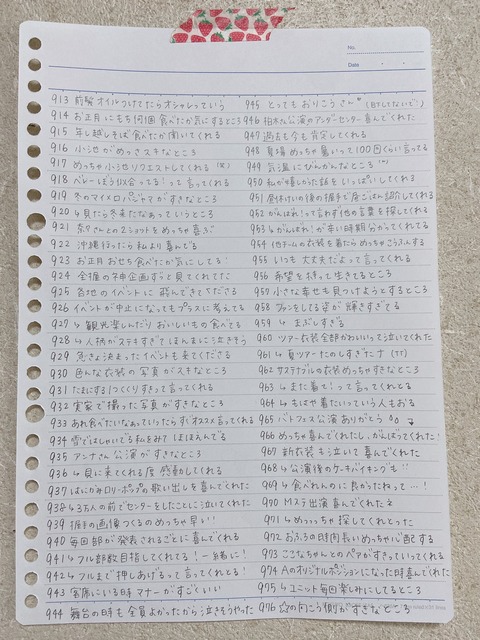 No.
Date
913 前髪オイルつけてたらオシャレっていう
914 お正月にもち何個食べたか気にするところ
915 年し越しそば食べたか聞いてくれる
916 小池がめっさスキなところ
917 めっちゃ小池リクエストしてくれる (笑)
918 ベレーぼうし似合ってる!って言ってくれる
919 冬のマイメロパジャマがすきなところ
920 ↳見たら冬来たなぁっていうところ
921 奈々さんとの2ショットをめっちゃ喜ぶ
922 沖縄行ったら私より喜んでる
923 お正月おせち食べたか気にしてる!
924 全握の神企画ずっと見てくれてた
925 各地のイベントに飛んできてくださる
926 イベントが中止になってもプラスに考えてる
927 ↳観光楽しんだりおいしいもの食べてる
928 ↳人柄がステキすぎてほんまに泣きそう
929 急きょ決まったイベントも来てくださる
930 色んな衣装の写真がスキなところ
931 たまにする1つくくりすきって言ってくれる
932 実家で撮った写真がすきなところ
933 あれ食べたいなぁっていったらオススメ言ってくれる
934 雪ではしゃいでる私をみてほほえんでる
935 アンナさん公演がすきなところ
936 ↳見に来てくれる度感動してくれる
937 はじかみロリーポップの歌い出しを喜んでくれた
938 ↳3万人の前でセンターをしたことに泣いてくれた
939 握手の画像つくるのめっちゃ早い!!
940 毎回部が発表されるごとに喜んでくれる
941 ↳フル部数目指してくれてる!一緒に!
942 ↳フルまで押しあげるって言ってくれとる!
943 客席にいる時マナーがすごくいい
944 舞台の時も全員よかったから泣きそうやった
945 とってもおりこうさん
946 柏木さん公演のアンダーセンター喜んでくれた
947 過去も今も肯定してくれる
948 夏場めっちゃ暑いって100回くらい言ってる
949 気温にびんかんなところ
950 私が嬉しかった話をいっぱいしてくれる
951 昼休けいの後の握手で昼ごはん紹介してくれる
952 がんばれ!って言わず他の言葉を探してくれる
953 ↳がんばれ!が辛い時期分かってくれる
954 他チームの衣装を着たらめっちゃこうふんする
955 いつも大丈夫だよって言ってくれる
956 希望を持って生きてるところ
957 小さな幸せも見つけようとするところ
958 ファンをしてる姿が輝きすぎてる
959 ↳まぶしすぎる
960 ツアー衣装全部かわいいって泣いてくれた
961 ↳夏ツアーたのしすぎたナ (TT)
962 サステナブルの衣装めっちゃすきなところ
963 ↳また着て!って言ってくれとる
964 ↳もはや着たいっていう人もおる
965 バトフェス公演ありがとう
966 めっちゃ喜んでくれたし、がんばってくれた!
967 新衣装も泣いて喜んでくれた
968 ↳公演後のケーキバイキングも!!
969 ↳食べれんのに良かったねって…!
970 Mステ出演喜んでくれたネ
971 ↳めっっちゃ探してくれとった
972 おふろの時間長いめっちゃ心配する
973 ここなちゃんとのペアがすきっていってくれる
974 Aのオリジナルポジションになった時喜んでくれた
975 ↳ユニット毎回楽しみにしてるところ
976 ☆の向こう側がすきなところ